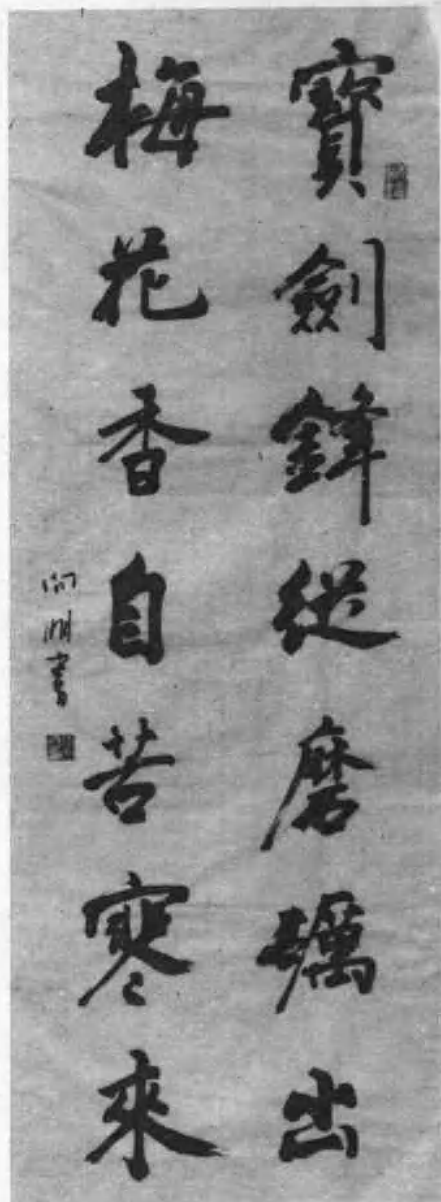 寶劍鋒從磨礪出
梅花香自苦寒來
明書